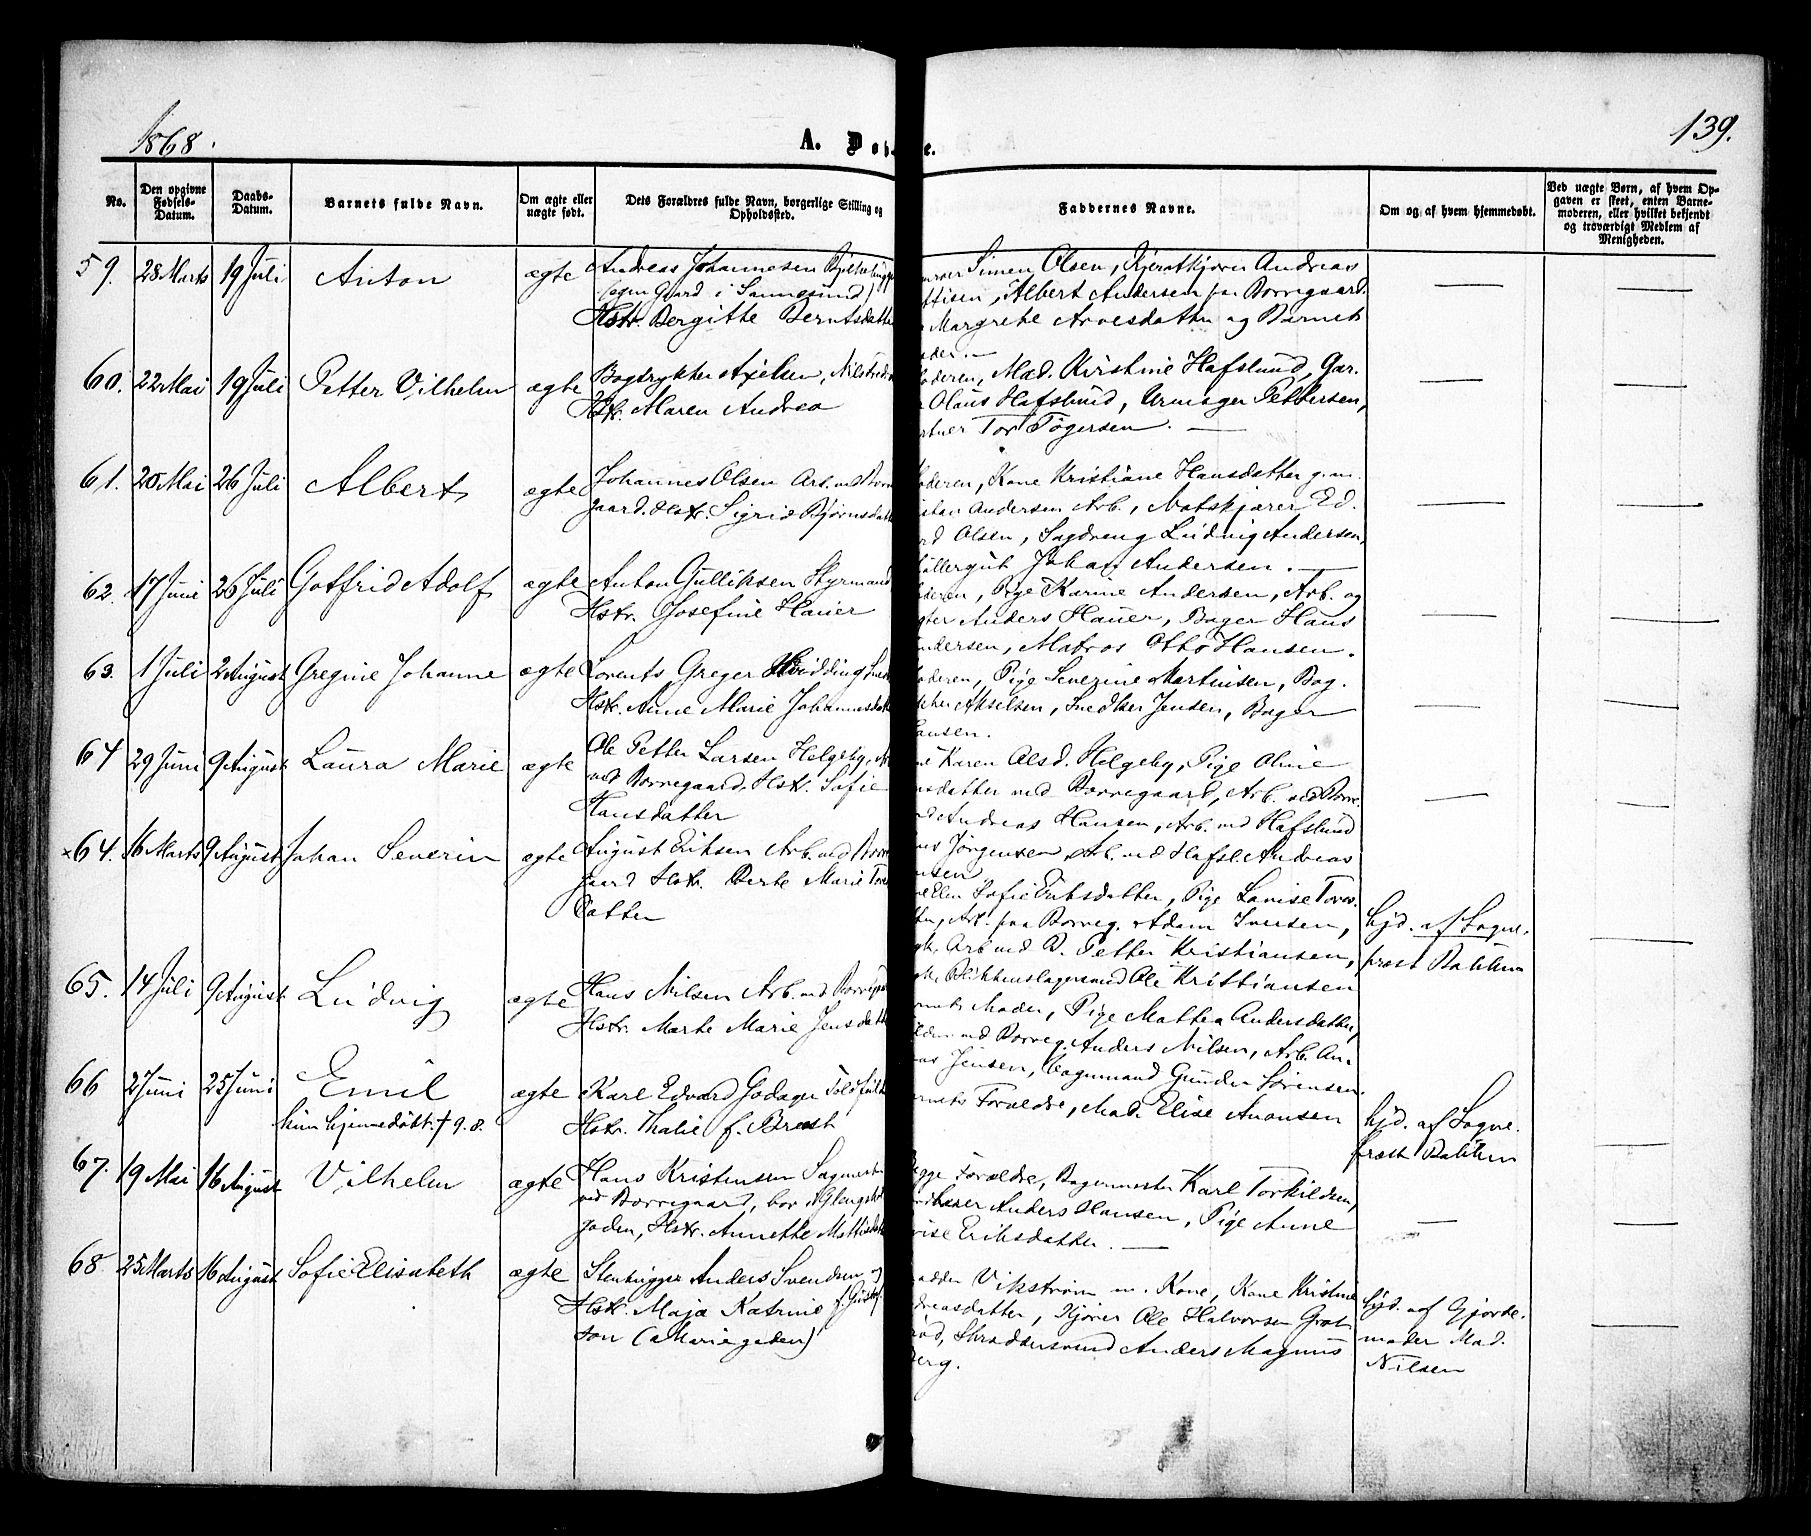 1868.
A. Døb
e.
139.
No.
Den opgivne Fødsels-Datum.
Daabs-Datum.
Barnets fulde Navn.
Om ægte eller uægte født.
Dets Forældres fulde Navn, borgerlige Stilling og Opholdssted.
Faddernes Navne.
Om og af hvem hjemmedøbt.
Ved uægte Børn, af hvem Opgaven er skeet, enten Barnemoderen, eller hvilket bekjendt og troværdigt Medlem af Menigheden.
59. 28 Marts 19 Juli Anton ægte Andreas Johannesen
(egen Gaard i Sannesund)
Hstr. Bergitte Berntsdatte
Simen Olsen, Andreas
Albert Andersen paa Borregaard
Margrete Arvesdatter og Barnets
ader. —
60. 22 Mai 19 Juli Petter Vilhelm ægte Bogtrykker Axelsen,
Hstr. Maren Andrea
oderen, Mad. Kirstine Hafslund, Gar.
Olaus Hafslund, Urmager Pettersen,
rtner Tor Tøgersen. —
61. 20 Mai 26 Juli Albert ægte Johannes Olsen Arb. ved Borre
gaard. Hstr. Sigrid Bjørnsdatte
oderen, Kone Kristiane Hansdatter g. m.
istian Andersen Arb., Matskjører Ed.
rd Olsen, Sagdreng Ludvig Andersen,
øllergut Johan Andersen. —
62. 17 Juni 26 Juli Gotfrid Adolf ægte Anton Gulliksen Styrmand
Hstr. Josefine Hauer
oderen, Pige Karine Andersen, Arb. og
gter Anders Hauer, Bager Hans
ndersen, Matros Otto Hansen.
63. 1 Juli 2 August Gregine Johanne ægte Lorents Greger Hvidding,
Hstr. Anne Marie Johannesdat
oderen, Pige Severine Martinsen, Bog.
ykker Akselsen, Snedker Jensen, Bager
ansen.
64 29 Juni 9 August Laura Marie ægte Ole Petter Larsen Helgeby, Ar
ved Borregaard. Hstr. Sofie
Hansdatter
ne Karen Olsd. Helgeby, Pige Oline
nsdatter ved Borregaard, Arb. ved Borre.
rd Andreas Hansen, Arb. ved Hafslund
ns Jørgensen Arb. ved Hafsl. Andreas
nsen
× 64. 16 Marts 9 August Johan Severin ægte August Eriksen Arb. ved Borre
gaard Hstr. Berte Marie Tores
datter
ne Ellen Sofie Eriksdatter, Pige Lovise Tores.
tter, Arb. paa Borreg. Adam Iversen,
gk. Arb ved B. Petter Kristiansen,
gk. Blikkenslagersvend Ole Kristiansen
hjd. af Sogne.
præst
65. 14 Juli 9 August Ludvig ægte Hans Nilsen Arb. ved Borregd
Hstr. Marte Marie Jensdatt
rnets Moder, Pige Mattea Andersdatter,
ved Borreg. Anders Nilsen, Arb. An.
as Jensen, Vognmand Gunder Sørensen.
66 2 Juni 25 Juni Emil ægte Karl Edvard Godager Toldfuld
kun hjemmedøbt. † 9. 8. Hstr. Thalie f. Brest
rnets Forældre, Mad. Elise Aronsen
hjd. af Sogne.
præst
67. 19 Mai 16 August Vilhelm ægte Hans Kristensen Sagmester
ved Borregaard, bor i Glengshol
gaden, Hstr. Annette Mattisdat
egge Forældre, Bogenmester Karl Torkildsen,
Anders Hansen, Pige Anne
vise Eriksdatter. —
68 25 Marts 16 August Sofie Elisabeth ægte Stenhugger Anders Svendsen og
Hstr. Maja Katrine f. Gustaf
son (a Mariegaden)
adder Vikstrøm m. Kone, Kone Kristine
dreasdatter, Kjører Ole Halvorsen Grot
rød, Skræddersvend Anders Magnus
berg.
hjd. af Gjorde.
moder Mad.
Nilsen